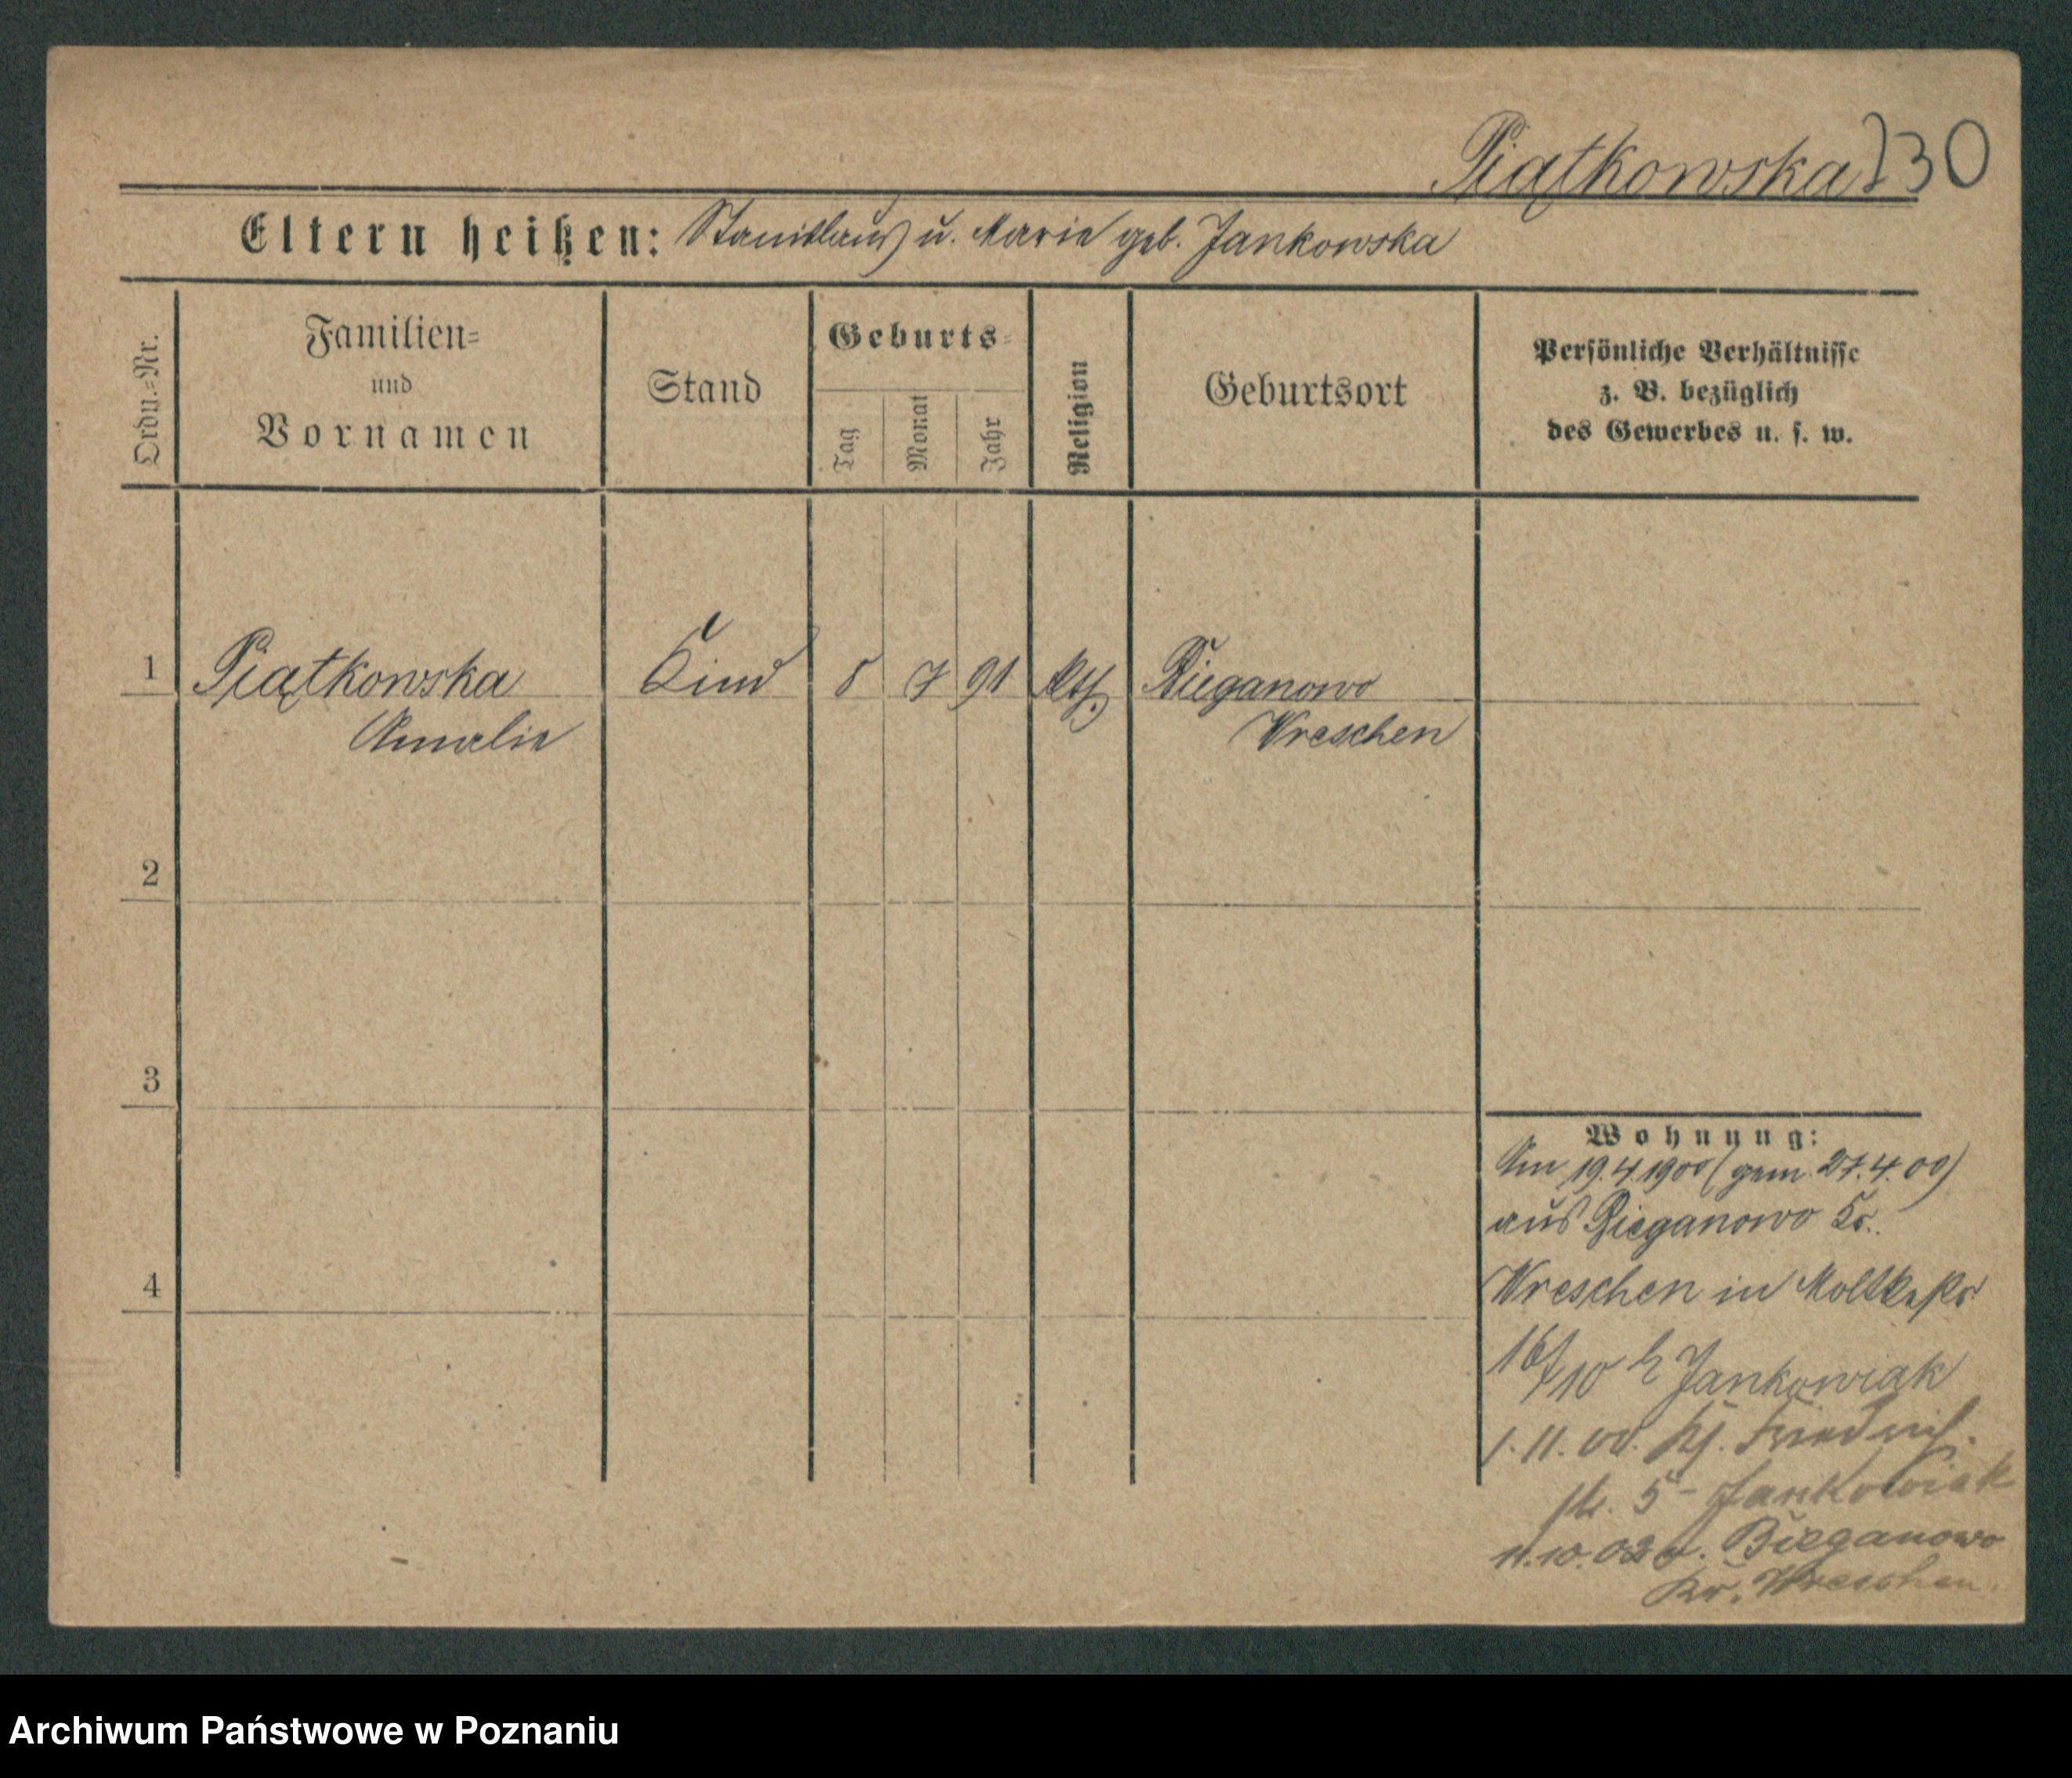 Piątkowska 730
Eltern heißen: Stanislaus u. Marie geb. Jankowska
Ordn.=Nr.
Familien=
und
Vornamen
Stand
Geburts=
Tag
Monat
Jahr
Religion
Geburtsort
Persönliche Verhältnisse
z. B. bezüglich
des Gewerbes u. s. w.
1 Piątkowska Kind 8 7 91 kth. Bieganowo
Amalie Wreschen
2
3
4
Wohnung:
Am 19.4.1900 (gem. 27.4.00)
aus Bieganowo Kr.
Wreschen in
16/10 Jankowiak
1.11.00. Friedrich
str. 5 Jankowiak
11.10.02 n. Bieganowo
Kr. Wreschen.
Archiwum Państwowe w Poznaniu